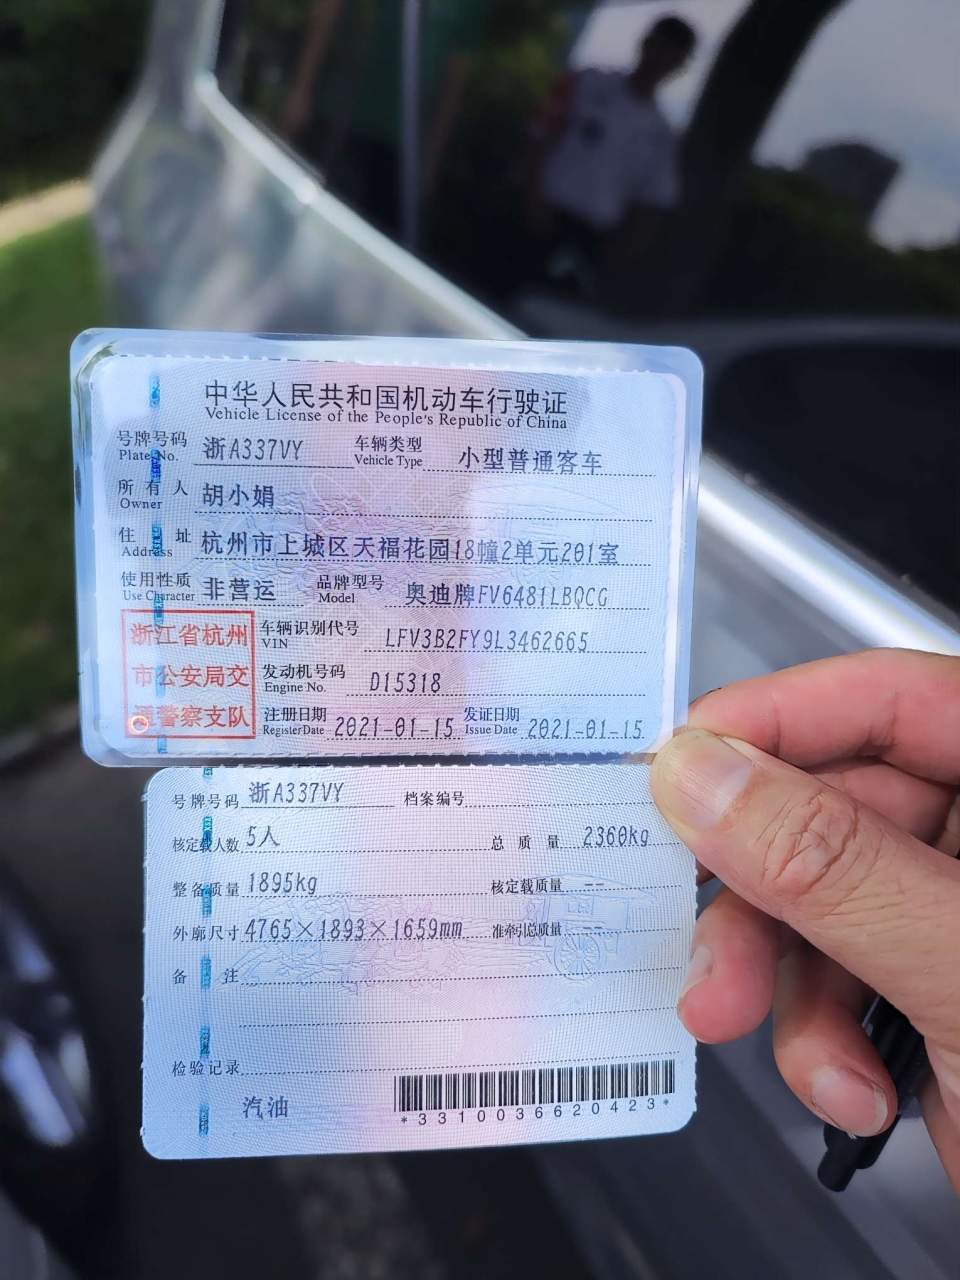 中华人民共和国机动车行驶证
Vehicle License of the People's Republic of China
号牌号码 浙A337VY 车辆类型 小型普通客车
Plate No. Vehicle Type
所有人 胡小娟
Owner
住址 杭州市上城区天福花园18幢2单元201室
Address
使用性质 非营运 品牌型号 奥迪牌FV6481LBQCG
Use Character Model
浙江省杭州
市公安局交
通警察支队
车辆识别代号 LFV3B2FY9L3462665
VIN
发动机号码 D15318
Engine No.
注册日期 2021-01-15 发证日期 2021-01-15
Register Date Issue Date
号牌号码 浙A337VY 档案编号
核定载人数 5人 总质量 2360kg
整备质量 1895kg 核定载质量 --
外廓尺寸 4765×1893×1659mm 准牵引总质量 --
备注
检验记录
汽油
*3310036620423*